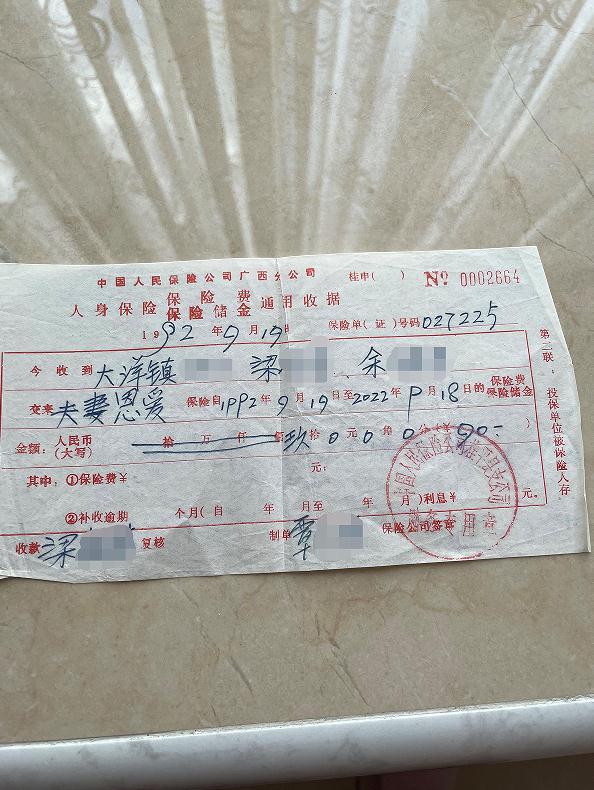 中国人民保险公司广西分公司 桂申( ) № 0002664
人身保险 保险费 保险储金 通用收据
1992年9月19日 保险单(证)号码027225
今收到 大洋镇 梁 、余
交来 夫妻恩爱 保险自1992年9月19日至2022年9月18日的 保险费 保险储金
金额:人民币(大写) 拾万仟佰玖拾0元0角0分(¥90-
其中:①保险费¥ 元;
②补收逾期 个月(自 年 月至 年 月)利息¥ 元。
收款 梁 复核 制单 覃 保险公司签章
第二联:投保单位被保险人存
中国人民保险公司 支公司
专用章